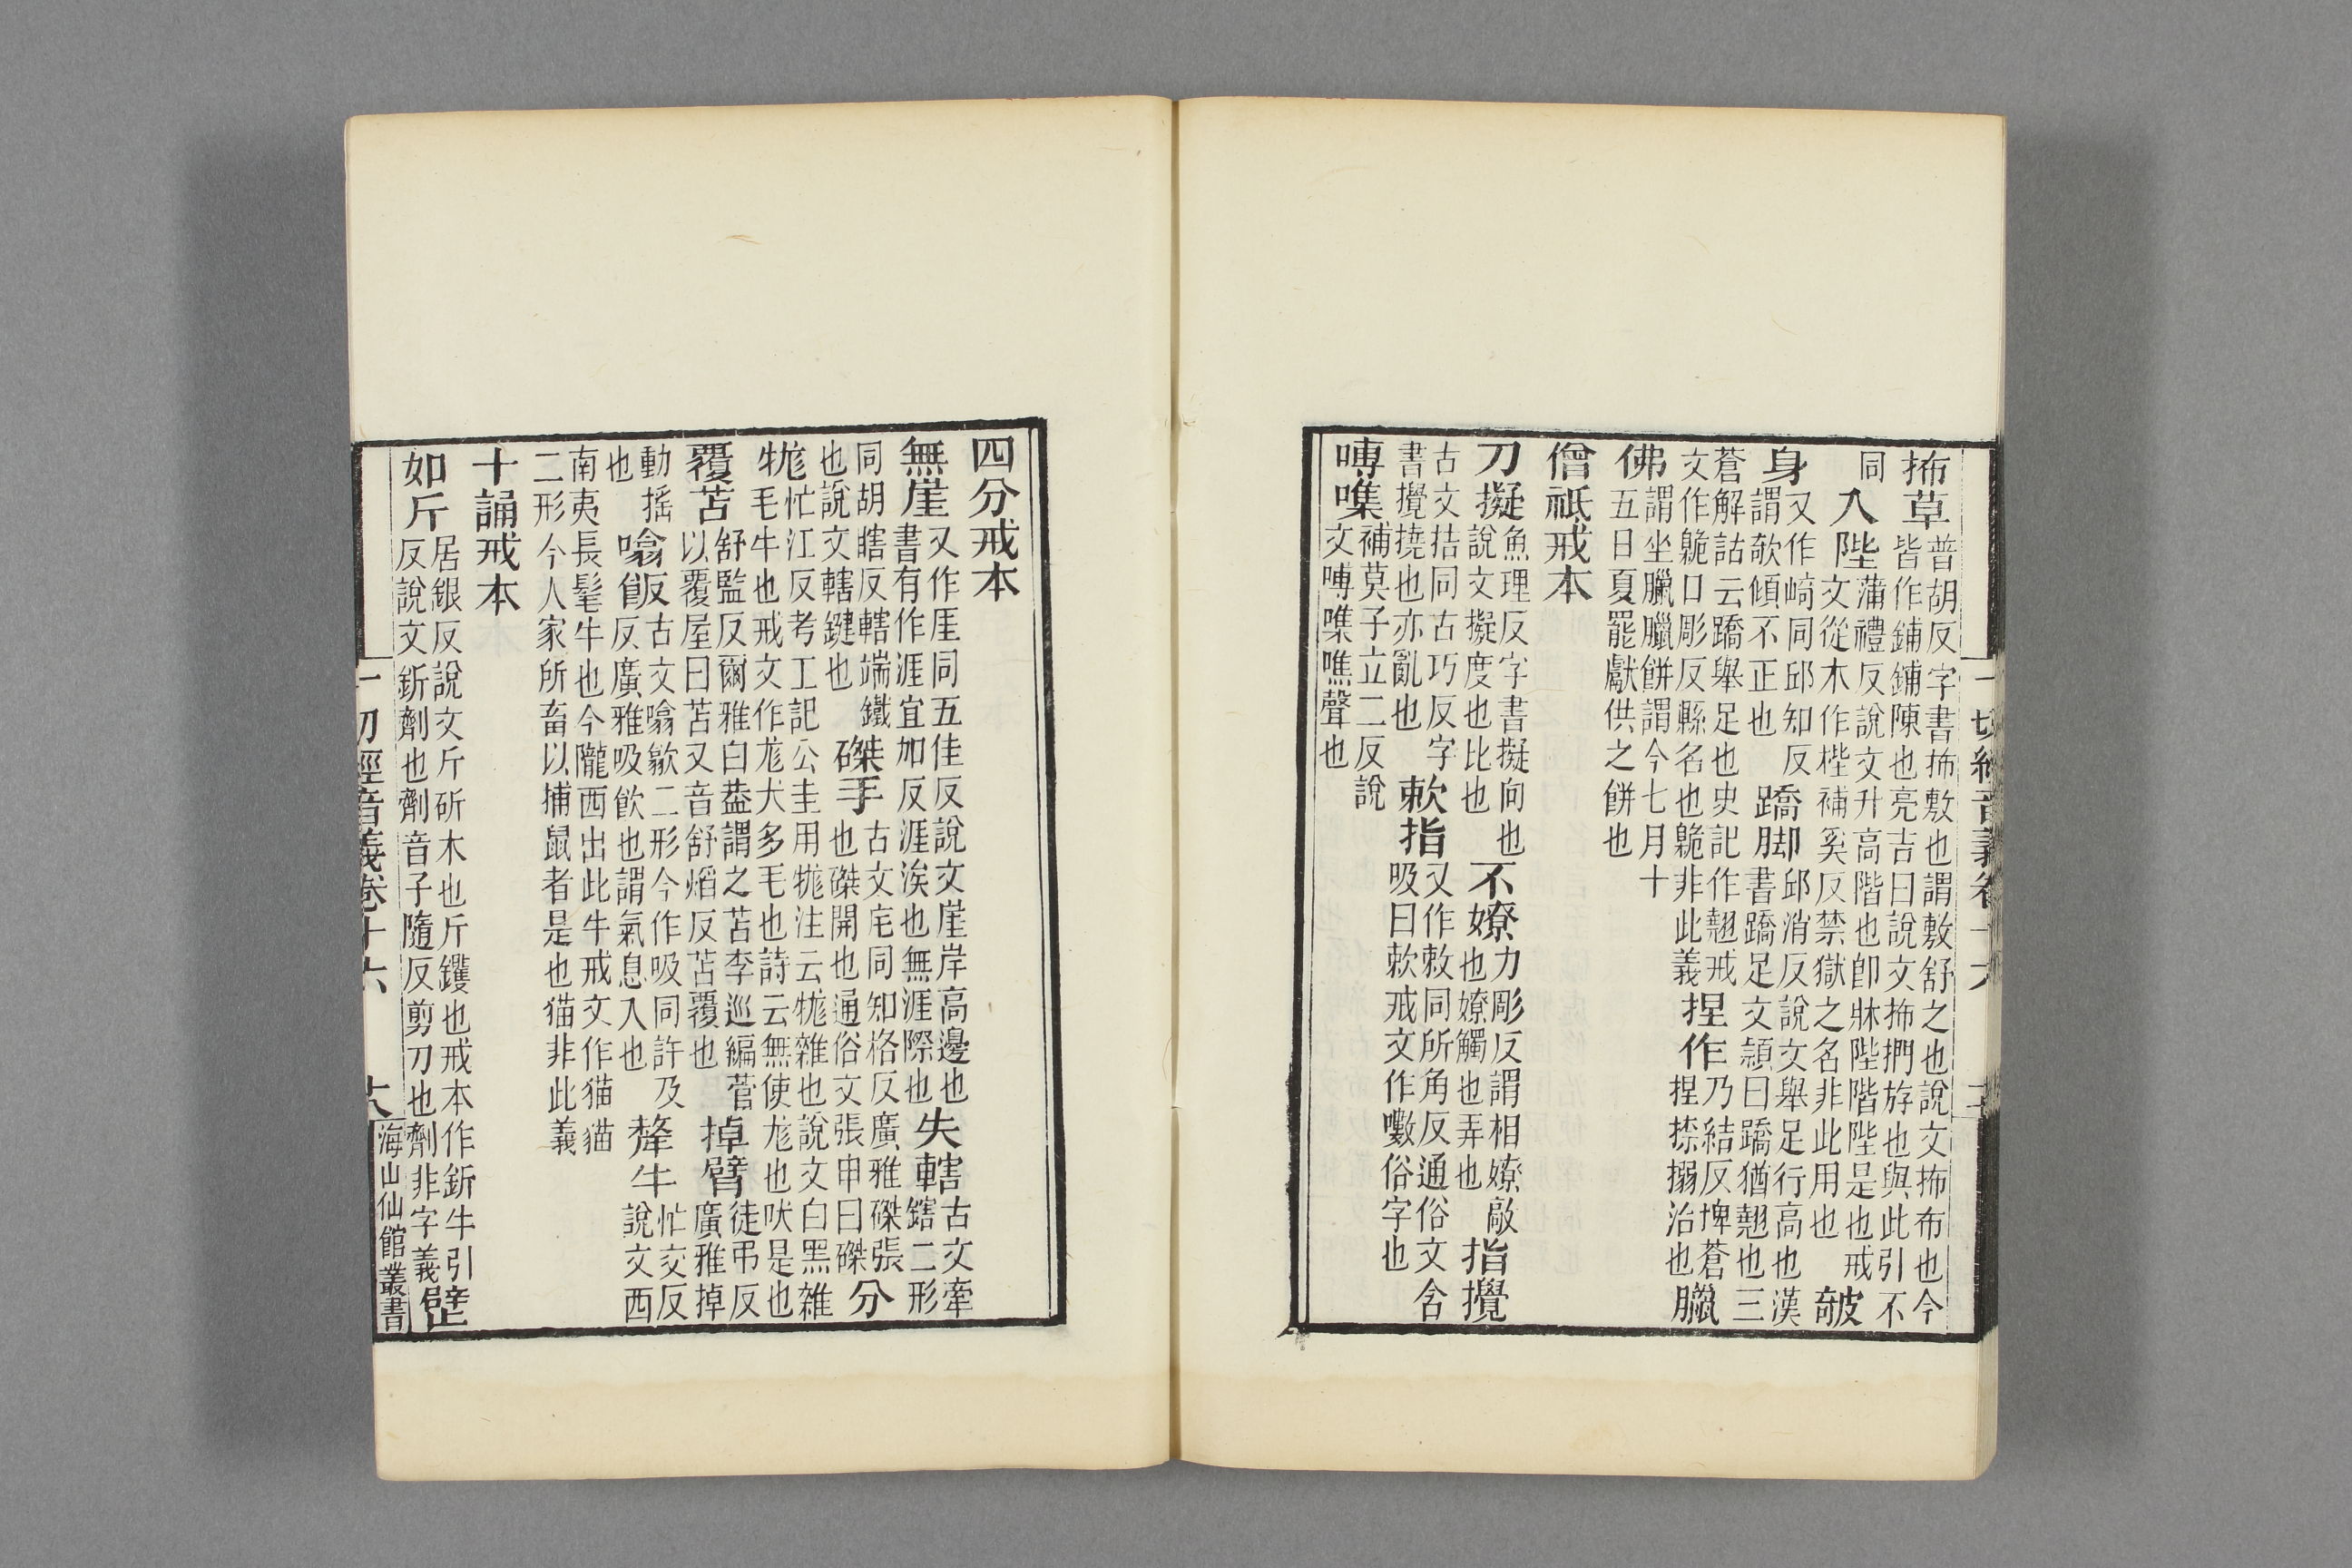 抪草普胡反字書抪敷也謂敷舒之也說文抪布也今
皆作鋪鋪陳也亮吉曰說文抪捫斿也與此引不
同入陛蒲禮反說文升高階也卽牀陛階陛是也戒
文從木作梐補奚反禁獄之名非此用也㩻
身又作崎同邱知反
謂欹傾不正也蹻脚邱消反說文舉足行高也漢
書蹻足文頴曰蹻猶翹也三
蒼解詁云蹻舉足也史記作翹戒
文作口彫反縣名也非此義捏作乃結反埤蒼
捏捺搦治也臘
佛謂坐臘臘餅謂今七月十
五日夏罷獻供之餅也
僧祇戒本
刀擬魚理反字書擬向也
說文擬度也比也不嫽力彫反謂相嫽敵
也嫽觸也弄也指攪
古文捁同古巧反字
書攪撓也亦亂也欶指又作敕同所角反通俗文含
吸曰欶戒文作嗽俗字也
㗘㗱補莫子立二反說
文㗘㗱噍聲也
一切經音義卷十六
四分戒本
無崖又作厓同五佳反說文崖岸高邊也
書有作涯宜加反涯涘也無涯際也失轄古文牽
鎋二形
同胡瞎反轄端鐵
也說文轄鍵也磔手古文㡯同知格反廣雅磔張
也磔開也通俗文張申曰磔分
牻忙江反考工記公圭用牻注云牻雜也說文白黑雜
毛牛也戒文作尨犬多毛也詩云無使尨也吠是也
覆苫舒監反爾雅白葢謂之苫李巡編菅
以覆屋曰苫又音舒焰反苫覆也掉臂徒弔反
廣雅掉
動搖
也噏飯古文噏歙二形今作吸同許及
反廣雅吸飲也謂氣息入也犛牛忙交反
說文西
南夷長髦牛也今隴西出此牛戒文作猫猫
二形今人家所畜以捕鼠者是也猫非此義
十誦戒本
如斤居銀反說文斤斫木也斤钁也戒本作釿牛引
反說文釿劑也劑音子隨反剪刀也劑非字義躄
一切經音義卷十六 十六 海山仙館叢書